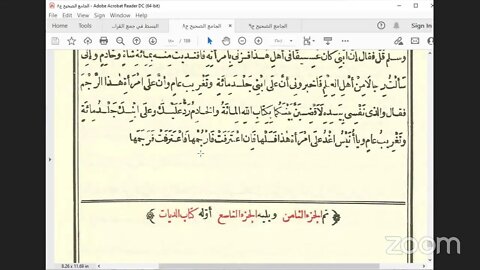 الجامع الصحيح ج٨.pdf - Adobe Acrobat Reader DC (64-bit)
البسيط في جمع القرا...
الجامع الصحيح ج٨...
الجامع الصحيح ج٩...
Sign In
/ 188
وسلم قل فقال إن ابني كان عسيفا في أهل هذا فزنى بامرأته فافتديت منه بمائة شاة وخادم وإني
سألت رجالا من أهل العلم فأخبروني أن على ابني جلد مائة وتغريب عام وأن على امرأة هذا الرجم
فقال والذي نفسي بيده لأقضين بينكما بكتاب الله المائة والخادم رد عليك وعلى ابنك جلد مائة
وتغريب عام ويا أنيس اغد على امرأة هذا فسلها فإن اعترفت فارجمها فاعترفت فرجمها
﴿ تم الجزء الثامن ويليه الجزء التاسع أوله كتاب الديات ﴾
8.26 x 11.69 in
zoom